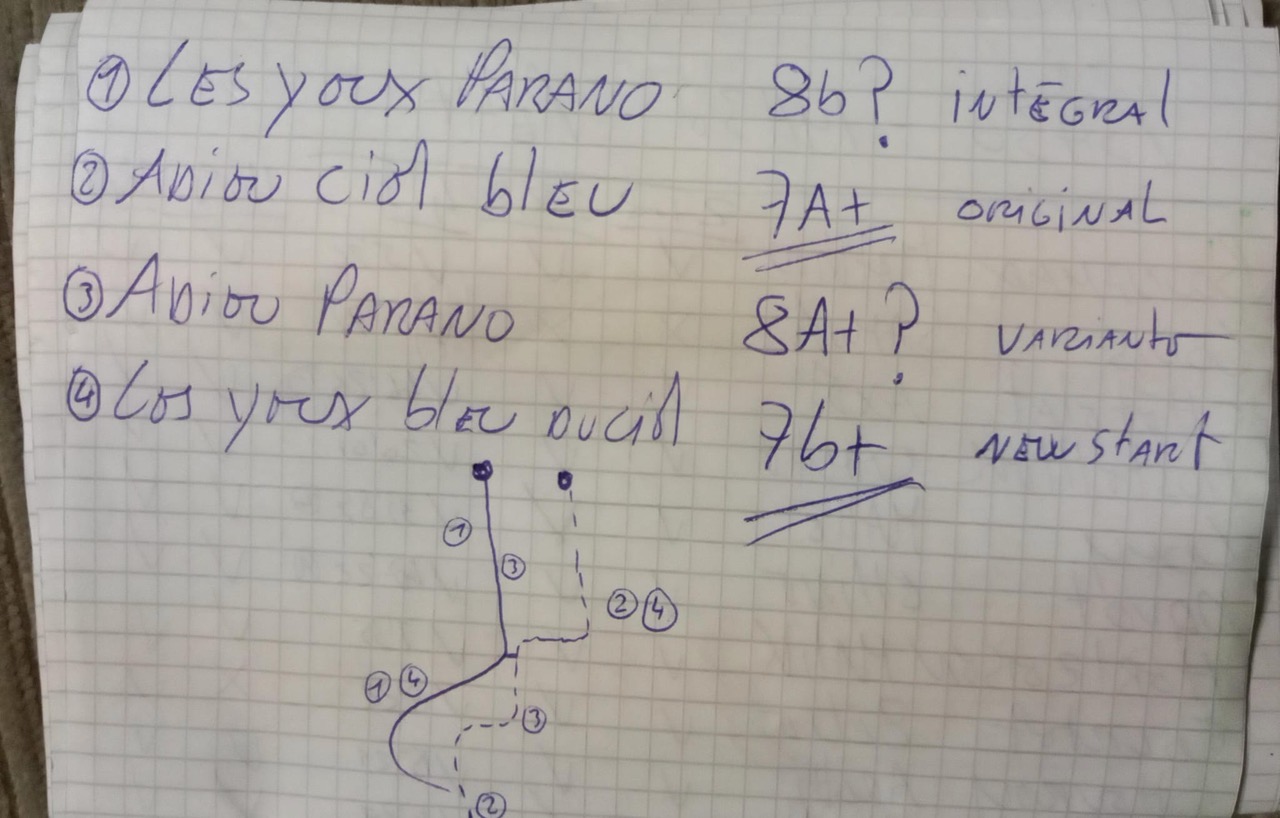 ① LES yeux PARANO 8b? intÉGRAL
② ADieu Ciel blEU 7A+ ORiGiNAL
③ ADieu PARANO 8A+? VARiANte
④ Les yeux blEU DUCiel 7b+ NEW StARt
①
③
② ④
① ④
③
②